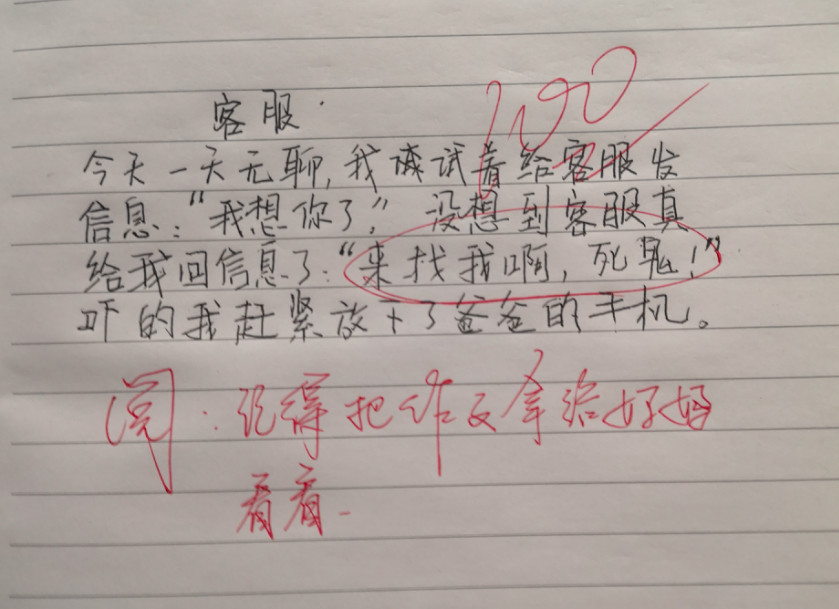 100
客服.
今天一天无聊,我试着给客服发
信息:"我想你了,"没想到客服真
给我回信息了:"来找我啊,死鬼!"
吓的我赶紧放下了爸爸的手机。
阅:记得把作文拿给妈妈
看看.